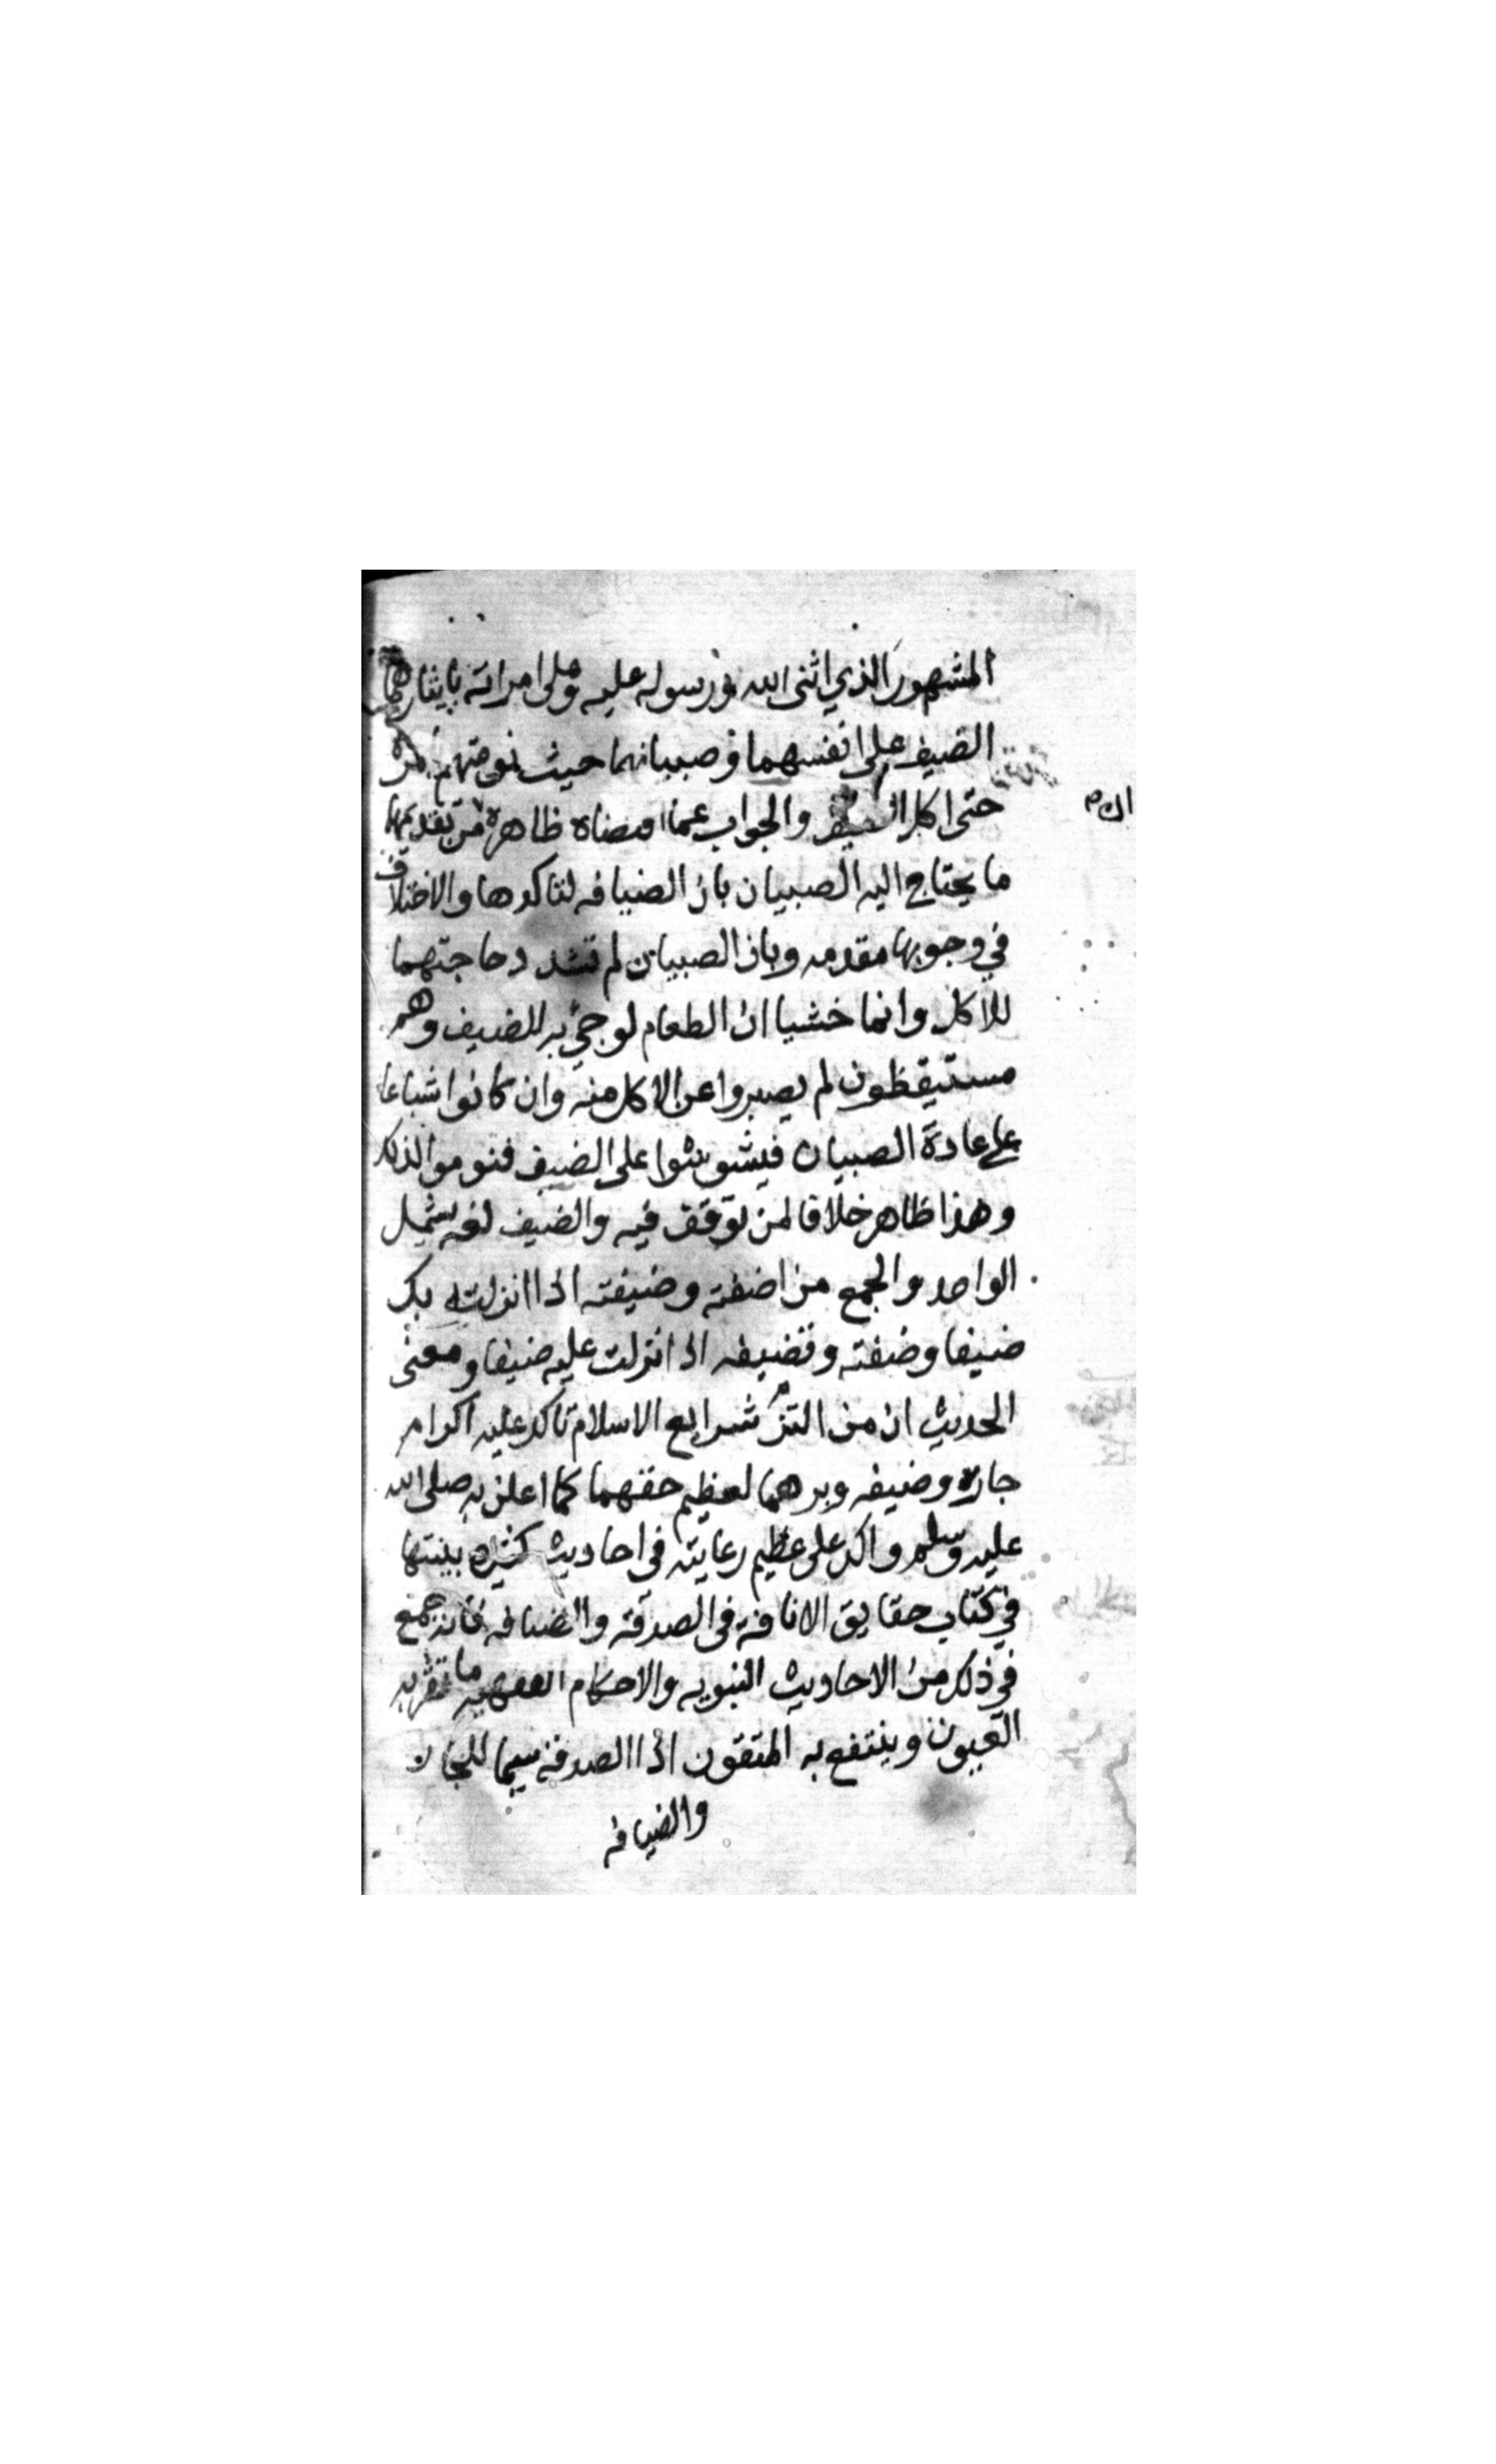 المشهور الذي اثنى الله ورسوله عليه وعلى امراته بايثارهما
الضيف على انفسهما وصبيانهما حيث نومتهم
حتى اكل الضيف والجواب عما اقتضاه ظاهره من تقديمها
ما يحتاج اليه الصبيان بان الضيافه لتاكدها والاختلاف
في وجوبها مقدمه وبان الصبيان لم تشتد حاجتهما
للاكل وانما خشيا ان الطعام لو جيء به للضيف وهم
مستيقظون لم يصبروا عن الاكل منه وان كانوا شباعا
على عادة الصبيان فيشوشوا على الضيف فنوموا لذلك
وهذا ظاهر خلافا لمن توقف فيه والضيف لغه يشمل
الواحد والجمع من اضفته وضيفته اذا انزلته بك
ضيفا وضفته وتضيفه اذا نزلت عليه ضيفا ومعنى
الحديث ان من التزم شرايع الاسلام تاكد عليه اكرام
جاره وضيفه وبرهما لعظيم حقهما كما اعلن به صلى الله
عليه وسلم واكد على عظيم رعايته في احاديث كثيره بينتها
في كتاب حقايق الانافة في الصدقة والضيافه فانه جمع
في ذلك من الاحاديث النبويه والاحكام الفقهيه ما تقر به
العيون وينتفع به المتقون اذ الصدقة سيما للجار
والضيافه